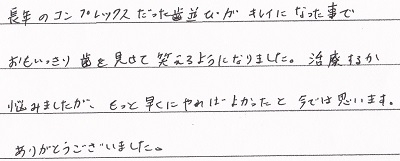 長年のコンプレックスだった歯並びがキレイになった事で
おもいっきり歯を見せて笑えるようになりました。治療するか
悩みましたが、もっと早くにやればよかったと今では思います。
ありがとうございました。